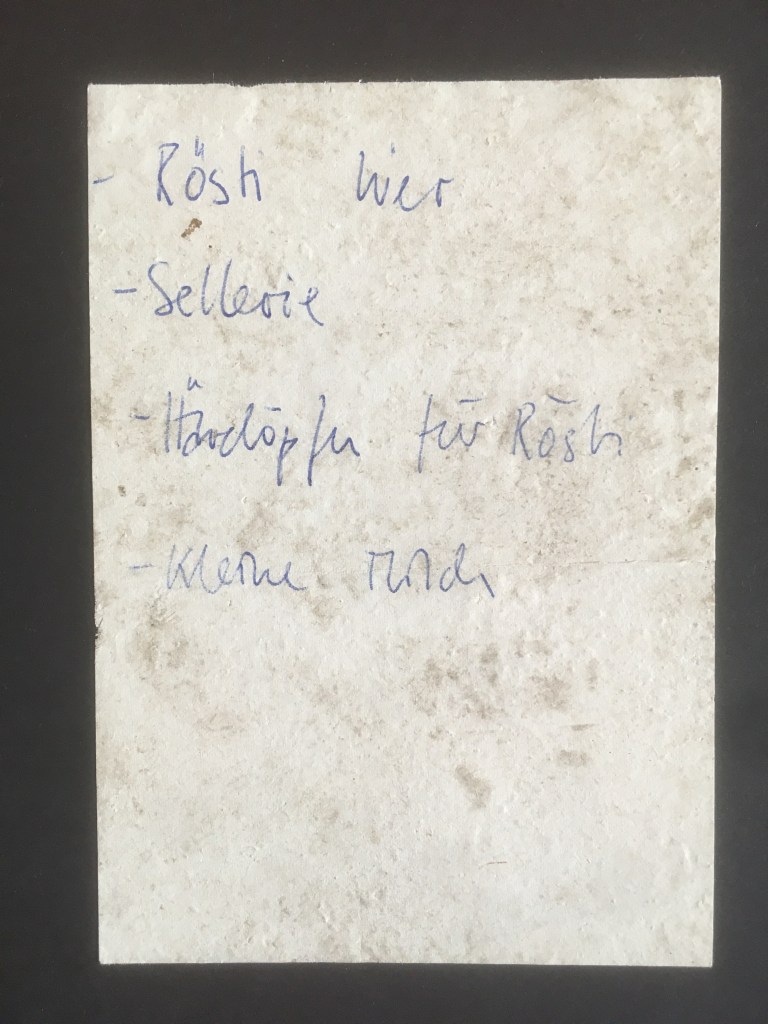 - Rösti hier
- Sellerie
- Härdöpfu für Rösti
- Kleine Milch